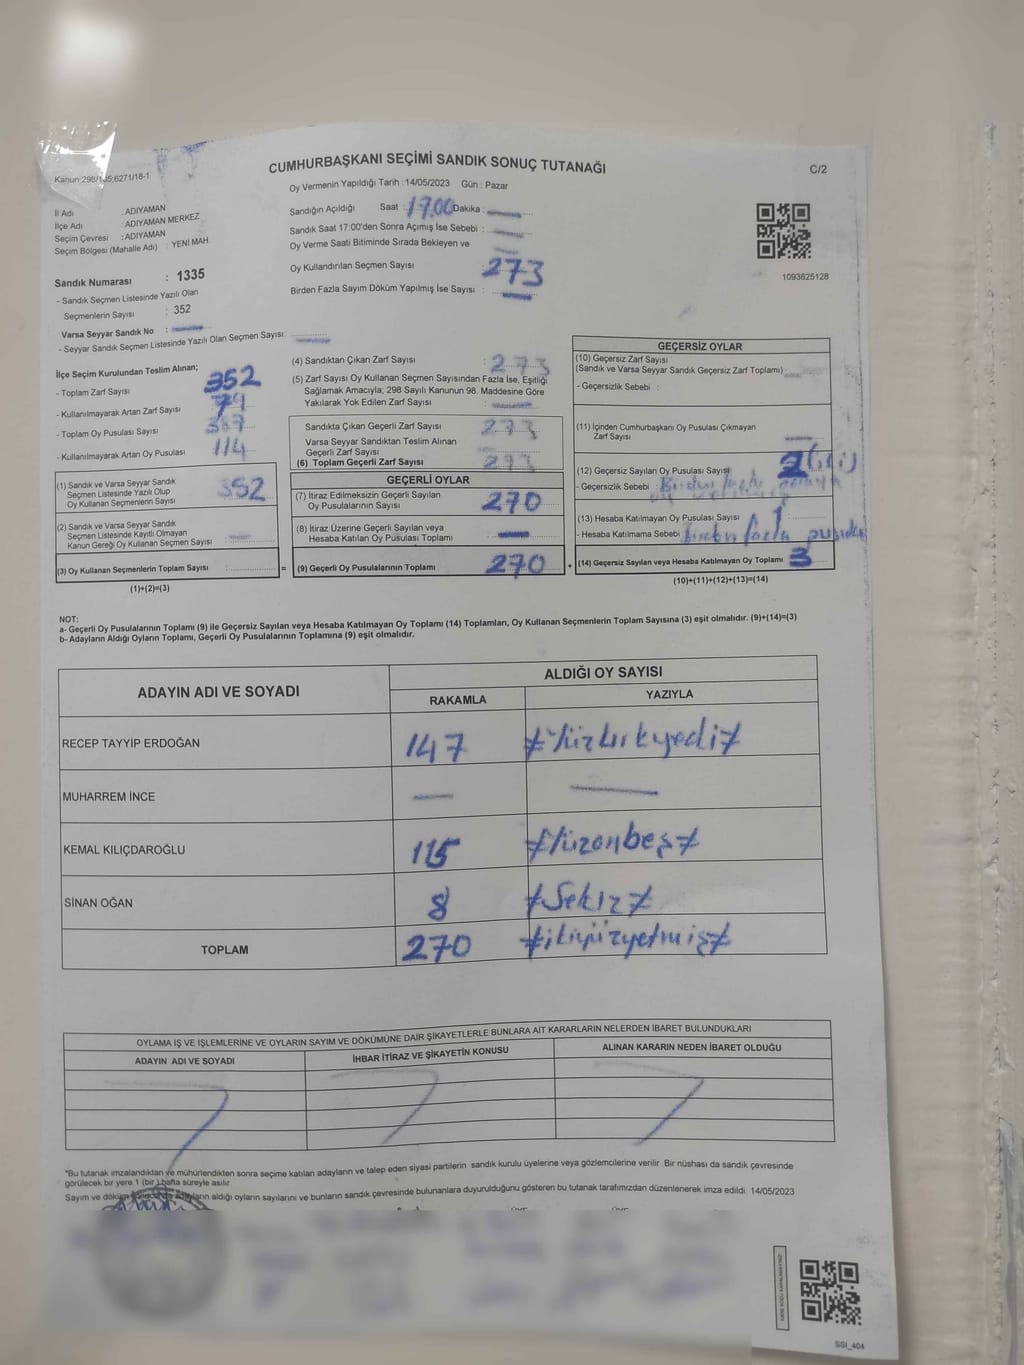 CUMHURBAŞKANI SEÇİMİ SANDIK SONUÇ TUTANAĞI
C/2
Oy Vermenin Yapıldığı Tarih : 14/05/2023 Gün : Pazar
İl Adı : ADIYAMAN
İlçe Adı : ADIYAMAN MERKEZ
Seçim Çevresi : ADIYAMAN
Seçim Bölgesi (Mahalle Adı) : YENİ MAH.
Sandık Numarası : 1335
- Sandık Seçmen Listesinde Yazılı Olan
Seçmenlerin Sayısı : 352
Varsa Seyyar Sandık No :
- Seyyar Sandık Seçmen Listesinde Yazılı Olan Seçmen Sayısı:
Sandığın Açıldığı Saat : 17.00 Dakika :
Sandık Saat 17:00'den Sonra Açımış İse Sebebi :
Oy Verme Saati Bitiminde Sırada Bekleyen ve
Oy Kullandırılan Seçmen Sayısı 273
Birden Fazla Sayım Döküm Yapılmış İse Sayısı :
1093825128
İlçe Seçim Kurulundan Teslim Alınan;
- Toplam Zarf Sayısı 352
- Kullanılmayarak Artan Zarf Sayısı 79
- Toplam Oy Pusulası Sayısı
- Kullanılmayarak Artan Oy Pusulası 114
(1) Sandık ve Varsa Seyyar Sandık
Seçmen Listesinde Yazılı Olup
Oy Kullanan Seçmenlerin Sayısı 352
(2) Sandık ve Varsa Seyyar Sandık
Seçmen Listesinde Kayıtlı Olmayan
Kanun Gereği Oy Kullanan Seçmen Sayısı :
(3) Oy Kullanan Seçmenlerin Toplam Sayısı : =
(1)+(2)=(3)
(4) Sandıktan Çıkan Zarf Sayısı : 273
(5) Zarf Sayısı Oy Kullanan Seçmen Sayısından Fazla İse, Eşitliği
Sağlamak Amacıyla; 298 Sayılı Kanunun 98. Maddesine Göre
Yakılarak Yok Edilen Zarf Sayısı :
Sandıkta Çıkan Geçerli Zarf Sayısı : 273
Varsa Seyyar Sandıktan Teslim Alınan
Geçerli Zarf Sayısı :
(6) Toplam Geçerli Zarf Sayısı : 273
GEÇERLİ OYLAR
(7) İtiraz Edilmeksizin Geçerli Sayılan
Oy Pusulalarının Sayısı 270
(8) İtiraz Üzerine Geçerli Sayılan veya
Hesaba Katılan Oy Pusulası Toplamı :
(9) Geçerli Oy Pusulalarının Toplamı 270 +
GEÇERSİZ OYLAR
(10) Geçersiz Zarf Sayısı
(Sandık ve Varsa Seyyar Sandık Geçersiz Zarf Toplamı)
- Geçersizlik Sebebi :
(11) İçinden Cumhurbaşkanı Oy Pusulası Çıkmayan
Zarf Sayısı
(12) Geçersiz Sayılan Oy Pusulası Sayısı 2 (iki)
- Geçersizlik Sebebi : Birden fazla
(13) Hesaba Katılmayan Oy Pusulası Sayısı : 1
- Hesaba Katılmama Sebebi : Birden fazla pusula
(14) Geçersiz Sayılan veya Hesaba Katılmayan Oy Toplamı 3
(10)+(11)+(12)+(13)=(14)
NOT:
a- Geçerli Oy Pusulalarının Toplamı (9) ile Geçersiz Sayılan veya Hesaba Katılmayan Oy Toplamı (14) Toplamları, Oy Kullanan Seçmenlerin Toplam Sayısına (3) eşit olmalıdır. (9)+(14)=(3)
b- Adayların Aldığı Oyların Toplamı, Geçerli Oy Pusulalarının Toplamına (9) eşit olmalıdır.
ADAYIN ADI VE SOYADI
ALDIĞI OY SAYISI
RAKAMLA YAZIYLA
RECEP TAYYİP ERDOĞAN 147 #Yüzkırkyedi#
MUHARREM İNCE — —
KEMAL KILIÇDAROĞLU 115 #Yüzonbeş#
SİNAN OĞAN 8 #Sekiz#
TOPLAM 270 #ikiyüzyetmiş#
OYLAMA İŞ VE İŞLEMLERİNE VE OYLARIN SAYIM VE DÖKÜMÜNE DAİR ŞİKAYETLERLE BUNLARA AİT KARARLARIN NELERDEN İBARET BULUNDUKLARI
ADAYIN ADI VE SOYADI İHBAR İTİRAZ VE ŞİKAYETİN KONUSU ALINAN KARARIN NEDEN İBARET OLDUĞU
"Bu tutanak imzalandıktan ve mühürlendikten sonra seçime katılan adayların ve talep eden siyasi partilerin sandık kurulu üyelerine veya gözlemcilerine verilir. Bir nüshası da sandık çevresinde
görülecek bir yere 1 (bir) hafta süreyle asılır.
Sayım ve döküm adayların aldığı oyların sayılarını ve bunların sandık çevresinde bulunanlara duyurulduğunu gösteren bu tutanak tarafımızdan düzenlenerek imza edildi. 14/05/2023
SSI_404